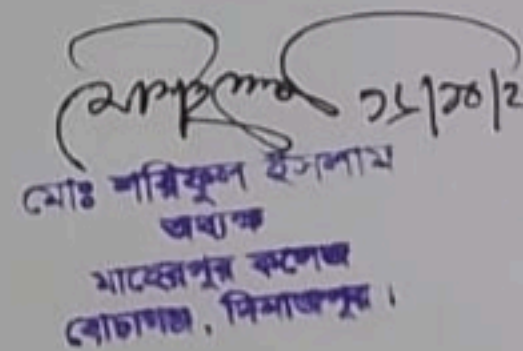 ১৮/১০/২
মোঃ শরিফুল ইসলাম
অধ্যক্ষ
মাহেরপুর কলেজ
বোচাগঞ্জ, দিনাজপুর।